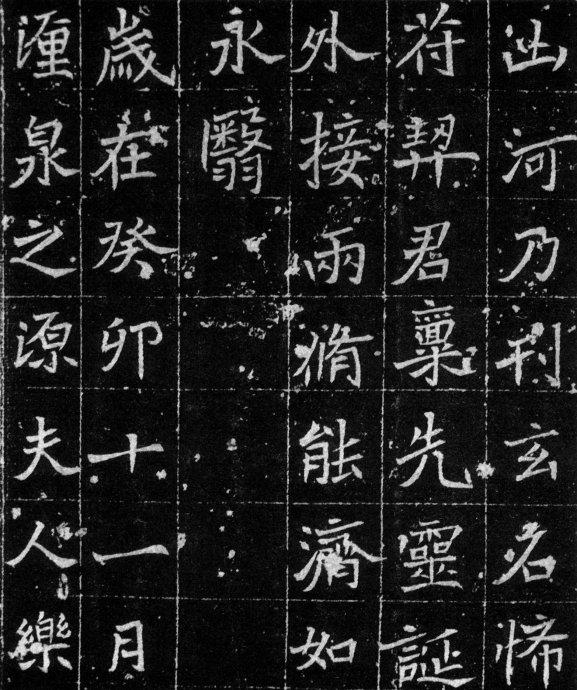 河乃刊玄名悕
苻契君稟先靈誕
外接兩脩能濟如
永翳
歲在癸卯十一月
瀍泉之源夫人樂